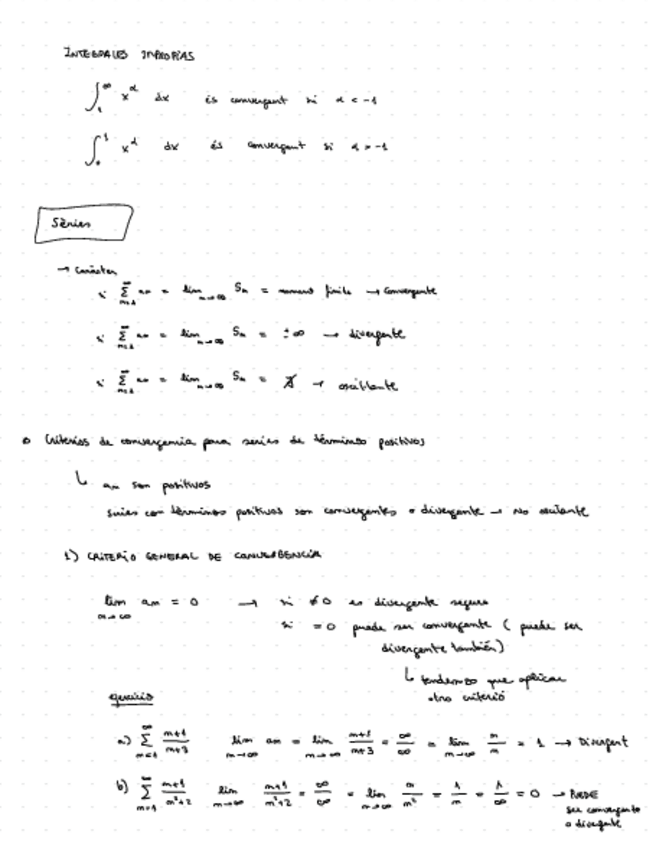 INTEGRALES IMPROPIAS
∫₁^∞ x^α dx és convergent si α < -1
∫₀^1 x^α dx és convergent si α > -1
Sèries
→ Carácter
si ∑_{n=1}^∞ an = lim_{n→∞} Sn = número finito → Convergente
si ∑_{n=1}^∞ an = lim_{n→∞} Sn = ±∞ → divergente
si ∑_{n=1}^∞ an = lim_{n→∞} Sn = ∄ → oscilante
Criterios de convergencia para series de términos positivos
↳ an son positivos
series con términos positivos son convergentes o divergente → No oscilante
1) CRITERIO GENERAL DE CONVERGENCIA
lim_{n→∞} an = 0 → si ≠0 es divergente seguro
si =0 puede ser convergente ( puede ser
divergente también)
↳ tendremos que aplicar
otro criterio
ejercicio
a) ∑_{n=1}^∞ (n+1)/(n+3) lim_{n→∞} an = lim_{n→∞} (n+1)/(n+3) = ∞/∞ = lim_{n→∞} n/n = 1 → Divergent
b) ∑_{n=1}^∞ (n+1)/(n²+2) lim_{n→∞} (n+1)/(n²+2) = ∞/∞ = lim_{n→∞} n/n² = 1/n = 1/∞ = 0 → PUEDE
ser convergente
o divergente